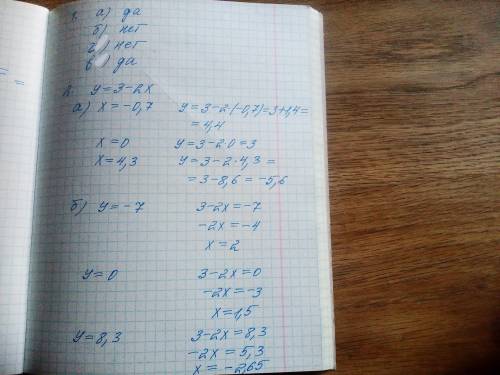 1. а) да
б) нет
г) нет
в) да
2. y=3-2x
а) x=-0,7 y=3-2·(-0,7)=3+1,4=
=4,4
x=0 y=3-2·0=3
x=4,3 y=3-2·4,3=
=3-8,6=-5,6
б) y=-7 3-2x=-7
-2x=-4
x=2
y=0 3-2x=0
-2x=-3
x=1,5
y=8,3 3-2x=8,3
-2x=5,3
x=-2,65